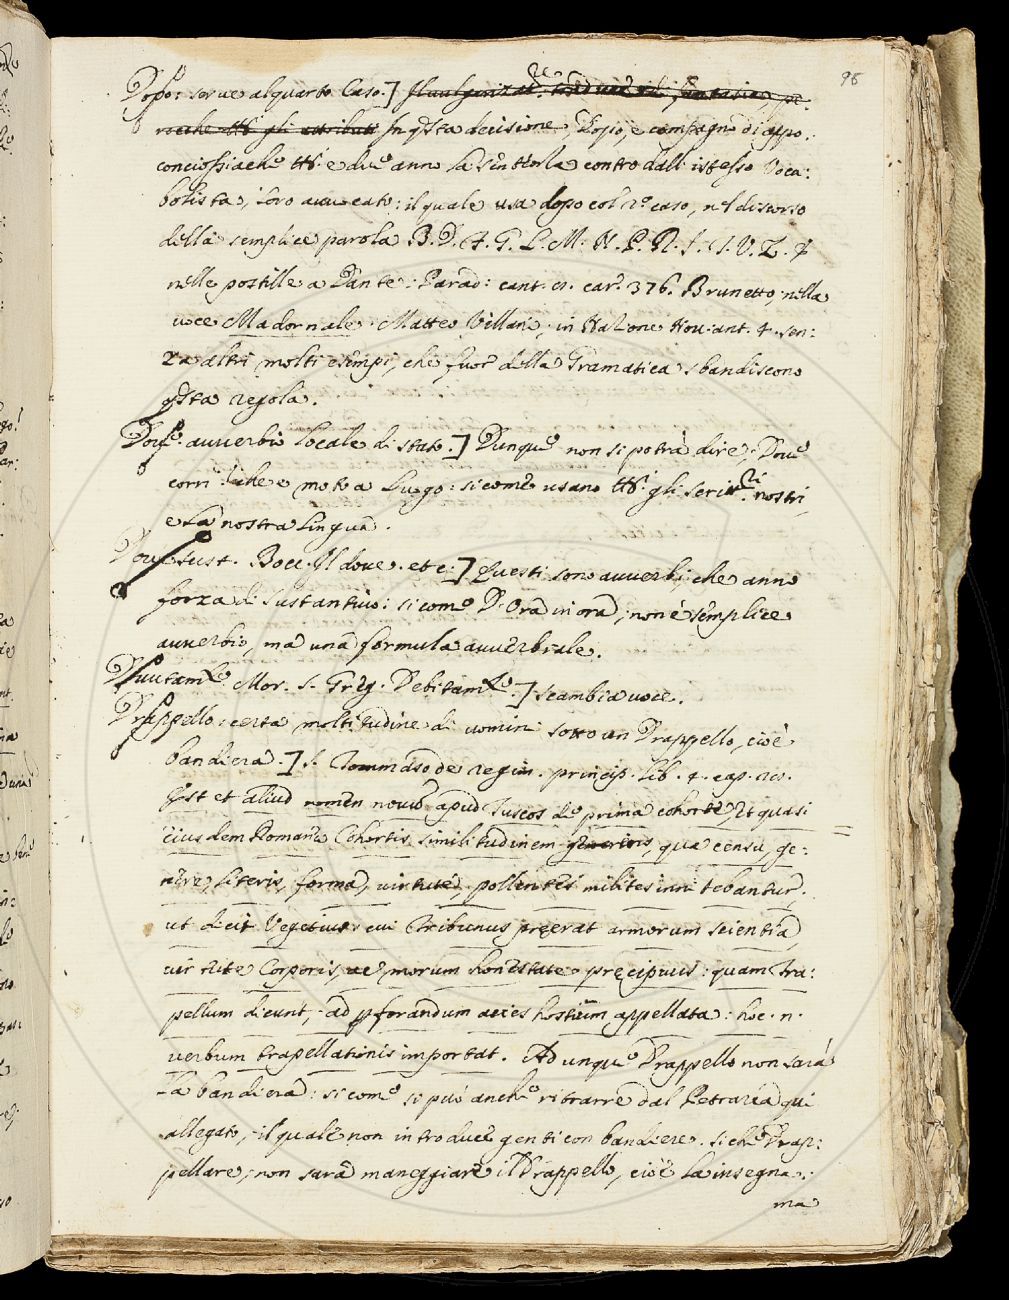 98
Dopo: serue al quarto Caso.]
In q̃sta decisione, Dopo, e compagno di appo:
conciossiache tt.i e due anno la sintiorla contro dall' istesso Voca:
bolista, loro auuocato: il quale usa dopo col 2.o caso, nel discorso
della semplice parola B. D. F. G. L. M. N. P. R. S. T. V. Z. &
nelle postille a Dante: Parad: cant. car. 376. Brunetto, nella
uoce Madornale. Matteo Villani, in Nou. ant. 4. sen:
za altri molti esempi, che fuor della Gramatica sbandiscono
q̃sta regola.
Doue auuerbio locale di stato.] Dunque non si potrà dire, Doue
corri? che e moto a luogo: sicome usano tt.i gli scritt.ri nostri,
e la nostra lingua.
Doue sust. Bocc. Il doue. etc.] Questi sono auuerbi, che anno
forza di sustantiuo: sicome D'Ora in ora, non è semplice
auuerbio, ma una formula auuerbiale.
Douutam.te Mor. S. Greg. Debitam.te.] scambia uoce.
Drappello: certa moltitudine di uomini sotto un Drappello, cioè
bandiera.] S. Tommaso de regim. princip. lib. 4. cap. 10.
Est et aliud nomen nouum apud Tuscos de prima cohorte, et quasi
eiusdem Romanæ Cohortis similitudinem gerens, qua censu, ge:
nere, literis, forma, uirtute, pollentes milites innitebantur,
ut dicit Vegetius: cui Tribunus preerat armorum scientia,
uirtute Corporis, ac morum honestate precipuus: quam Tra:
pellum dicunt, ad pforandum acies hostium appellata: hoc. n.
uerbum trapellationis importat. Adunque Drappello non sarà
la bandiera: sicome si può anche ritrarre dal Petrarca qui
allegato, il quale non introduce genti con bandiere. siche Drap:
pellare, non sarà maneggiare il Drappello, cioè la insegna:
ma